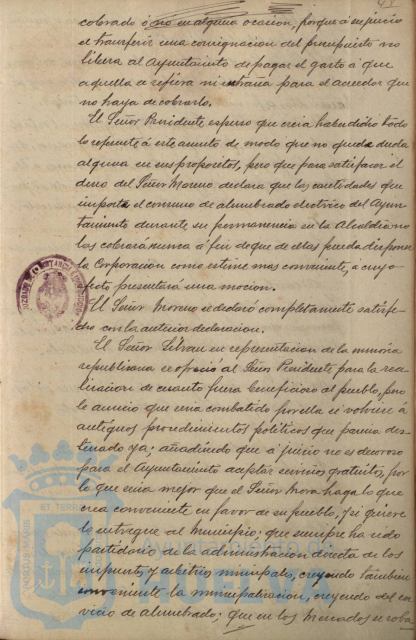 cobrado ó no en alguna ocasion, porque á su juicio
el transferir una consignacion del presupuesto no
libera al Ayuntamiento de pagar el gasto á que
aquella se refiera ni entraña para el acreedor que
no haya de cobrarlo.
El Señor Presidente expuso que creia haber dicho todo
lo referente á este asunto de modo que no quede duda
alguna en sus propositos, pero que para satisfacer el
deseo del Señor Moreno declara que las cantidades que
importa el consumo de alumbrado electrico del Ayun-
tamiento durante su permanencia en la Alcaldia no
las cobrará nunca á fin de que de ellas pueda disponer
la Corporacion como estime mas conveniente, á cuyo
efecto presentará una mocion.
El Señor Moreno se declaró completamente satisfe-
cho con la anterior declaracion.
El Señor en representacion de la minoria
republicana se ofreció al Señor Presidente para la rea-
lizacion de cuanto fuera beneficioso al pueblo, pero
le anunció que seria combatido por ella si volviere á
antiguos procedimientos politicos que parecia des-
terrado ya; añadiendo que á juicio no es decoroso
para el Ayuntamiento aceptar servicios gratuitos, por
lo que seria mejor que el Señor Mora haga lo que
crea conveniente en favor de su pueblo, y si quiere
lo entregue al Municipio: que siempre ha sido
partidario de la administracion directa de los
impuestos y arbitrios municipales, creyendo tambien
conveniente la municipalizacion, creyendo del ser-
vicio de alumbrado; que en los Mercados se roba